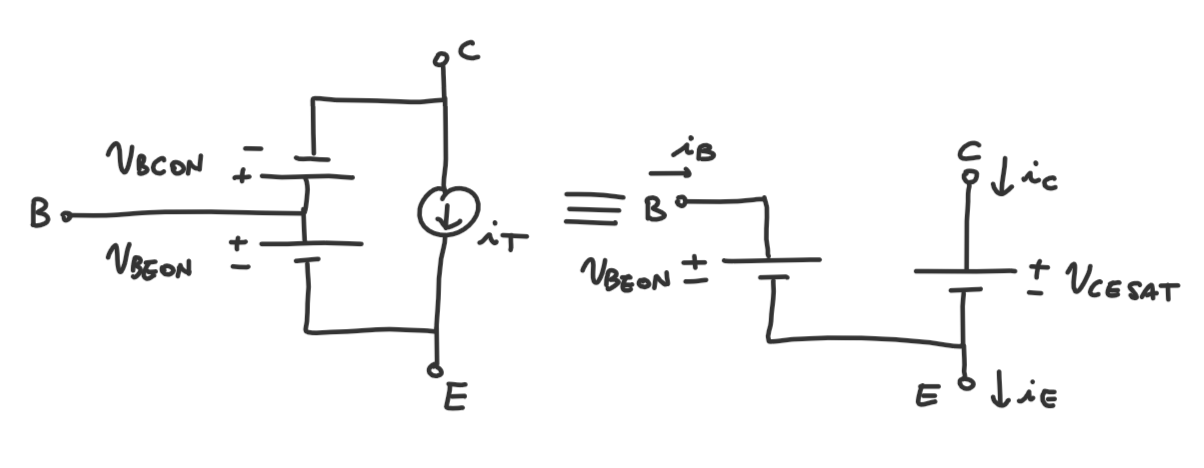 C
V_BCON
-
+
B
+
-
V_BEON
i_T
E
≡
i_B
B
V_BEON
+
-
C
i_C
+
-
V_CESAT
E
i_E